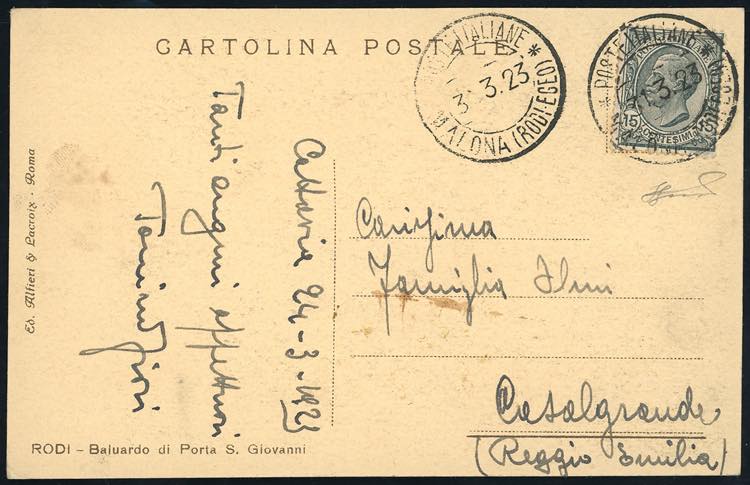 CARTOLINA POSTALE
POSTE ITALIANE
31.3.23
MALONA (RODI-EGEO)
POSTE ITALIANE
31.3.23
15 CENTESIMI 15
Cattavia 24-3-1923
Tanti auguri affettuosi
Carissima
Famiglia
Casalgrande
(Reggio Emilia)
Ed. Alfieri & Lacroix - Roma
RODI - Baluardo di Porta S. Giovanni